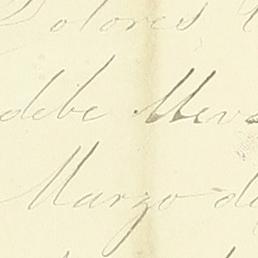 Dolores
debe
Marzo de